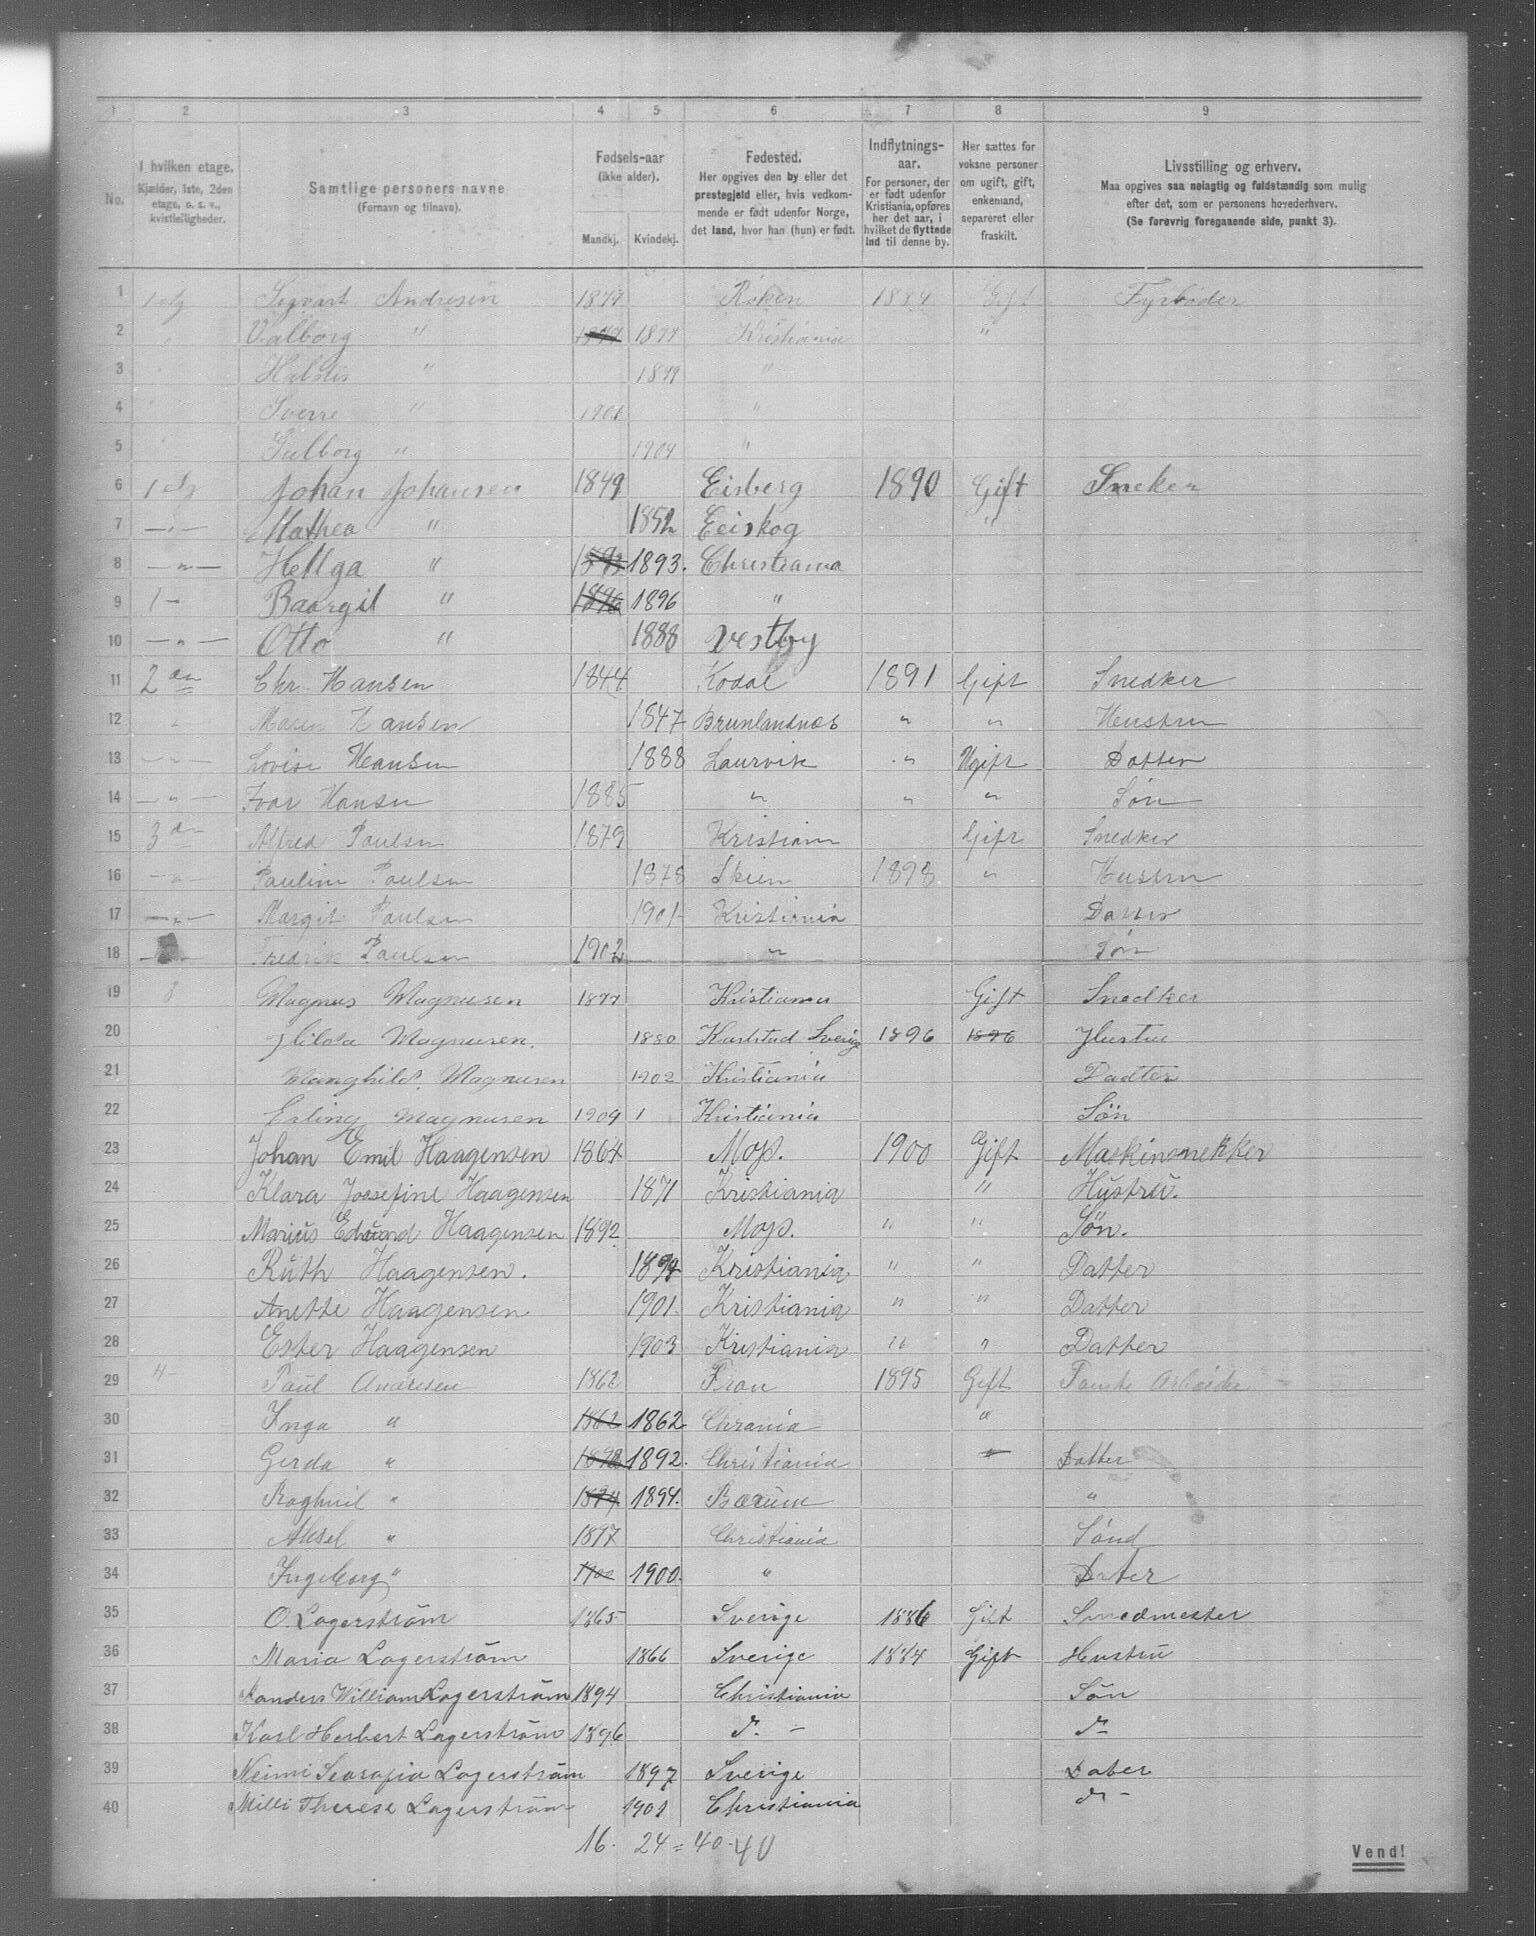 1 2 3 4 5 6 7 8 9
No.
I hvilken etage.
Kjælder, 1ste, 2den etage, o. s. v., kvistleiligheder.
Samtlige personers navne
(Fornavn og tilnavn).
Fødsels-aar
(ikke alder).
Mandkj. Kvindekj.
Fødested.
Her opgives den by eller det prestegjeld eller, hvis vedkommende er født udenfor Norge, det land, hvor han (hun) er født.
Indflytnings-aar.
For personer, der er født udenfor Kristiania, opføres her det aar, i hvilket de flyttede ind til denne by.
Her sættes for voksne personer om ugift, gift, enkemand, separeret eller fraskilt.
Livsstilling og erhverv.
Maa opgives saa nøiagtig og fuldstændig som mulig efter det, som er personens hovederhverv.
(Se forøvrig foregaaende side, punkt 3).
1 Sigvart Andresen Røken 1884 Gift Fyrbøder
2 Valborg " Kristiania "
3 " "
4 Sverre " 1901 "
5 " 1904 "
6 Johan Johansen 1849 Eisberg 1890 Gift Sneker
7 Mathea " 1852 Eeiskog "
8 —"— Hellga " 1893 1893. Christiania
9 1- Baargit " 1896 1896 "
10 —"— Otto " 1888 Vestby
11 2 Chr. Hansen 1844 Kodal 1891 Gift Snedker
12 " Maren Hansen 1847 Brunlandnæs " " Hustru
13 —"— Lovise Hansen 1888 Laurvik " Ugift Datter
14 —"— Ivar Hansen 1885 " " " Søn
15 3 Alfred Paulsen 1879 Kristiania Gift Snedker
16 —"— Pauline Paulsen 1878 Skien 1898 " Hustru
17 —"— Margit Paulsen 1901 Kristiania Datter
18 Fredrik Paulsen 1902 " Søn
19 3 Magnus Magnusen 1877 Kristiania Gift Snedker
20 Hilda Magnusen. 1880 Karlstad Sverige 1896 1896 Hustru
21 Magnusen 1902 Kristiania Dadter
22 Erling Magnusen 1904 1 Kristiania Søn
23 Johan Emil Haagensen 1864 Moss. 1900 Gift Maskinsnekker
24 Klara Jossefine Haagensen 1871 Kristiania " Hustru.
25 Marius Edvard Haagensen 1892 Moss. " " Søn.
26 Ruth Haagensen. Kristiania " " Datter
27 Anette Haagensen 1901. Kristiania " " Datter
28 Ester Haagensen 1903 Kristiania " " Datter
29 4- Paul Andresen 1862 Fron 1895 Gift Tomte Arbeider
30 Inga " 1862 1862 Chrania "
31 Gerda " 1892 1892. Christiania " Datter
32 Raghnil " 1894 1894. Bærum "
33 Aksel " 1897 Christiania Sønd
34 Ingeborg " 1900 1900. " Dater
35 O. Lagerström 1865 Sverige 1886 Gift Smedmester
36 Maria Lagerström 1866 Sverige 1884 Gift Hustru
37 William Lagerström 1894 Christiania Søn
38 Karl Herbert Lagerström 1896 d. - d-
39 Lagerström 1897 Sverige Dater
40 Milli Therese Lagerström 1901 Christiania d-
16. 24 = 40 - 40
Vend!